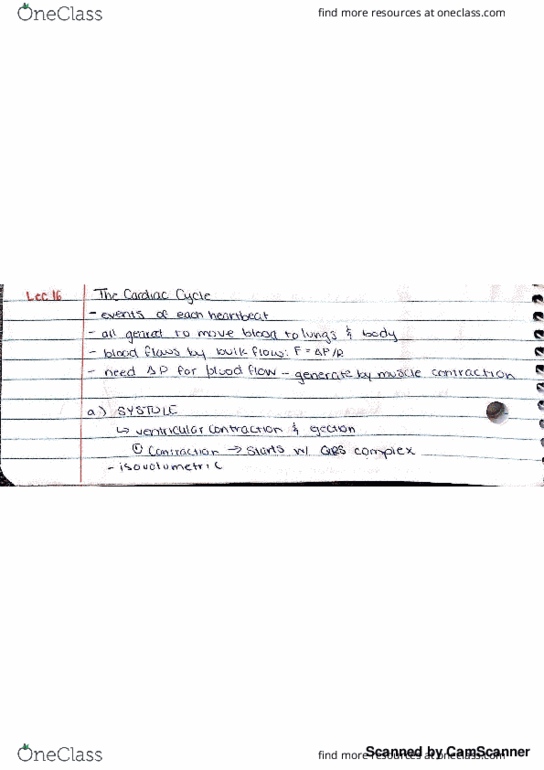 OneClass
find more resources at oneclass.com
Lec 16
The Cardiac Cycle
- events of each heartbeat
- all geared to move blood to lungs & body
- blood flows by bulk flow: F = ΔP/R
- need ΔP for blood flow - generate by muscle contraction
a) SYSTOLE
↳ ventricular contraction & ejection
① Contraction → starts w/ QRS complex
- isovolumetric
OneClass
find more resources at oneclass.com
Scanned by CamScanner